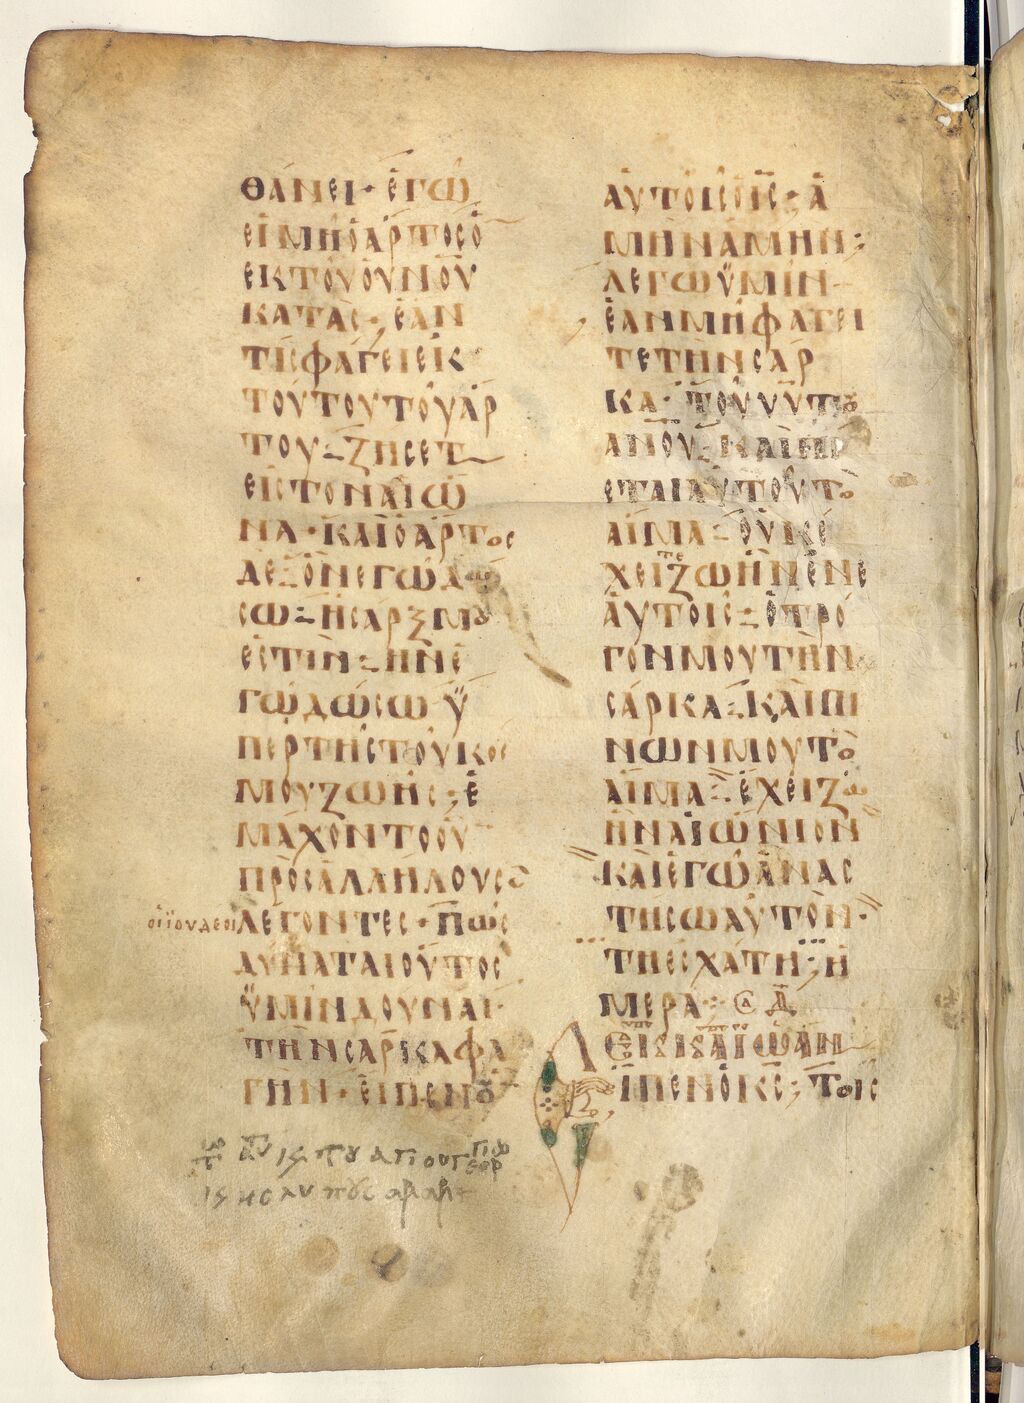 ΘΑΝΕΙ· ΕΓΩ
ΕΙΜΗ Ο ΑΡΤΟC Ο
ΕΚ ΤΟΥ ΟΥΝΟΥ
ΚΑΤΑC· ΕΑΝ
ΤΙC ΦΑΓΕΙ ΕΚ
ΤΟΥΤΟΥ ΤΟΥ ΑΡ
ΤΟΥ ΖΗCΕΤ
ΕΙC ΤΟΝ ΑΙΩ
ΝΑ· ΚΑΙ Ο ΑΡΤΟC
ΔΕ ΟΝ ΕΓΩ ΔΩ
CΩ Η CΑΡΞ ΜΟΥ
ΕCΤΙΝ ΗΝ Ε
ΓΩ ΔΩCΩ Ϋ
ΠΕΡ ΤΗC ΤΟΥ ΚΟC
ΜΟΥ ΖΩΗC· Ε
ΜΑΧΟΝΤΟ ΟΥ
ΠΡΟC ΑΛΛΗΛΟΥC
ΟΙ ΪΟΥΔΕΟΙ ΛΕΓΟΝΤΕC· ΠΩC
ΔΥΝΑΤΑΙ ΟΥΤΟC
ΫΜΙΝ ΔΟΥΝΑΙ·
ΤΗΝ CΑΡΚΑ ΦΑ
ΓΗΝ· ΕΙΠΕΝ ΟΥ
ΑΥΤΟΙC Ο ΙC· Α
ΜΗΝ ΑΜΗΝ
ΛΕΓΩ ΫΜΙΝ
ΕΑΝ ΜΗ ΦΑΓΕΙ
ΤΕ ΤΗΝ CΑΡ
ΚΑ· ΤΟΥ ΥΥ ΤΟΥ
ΑΝΟΥ ΚΑΙ ΠΙ
ΕΤΑΙ ΑΥΤΟΥ ΤΟ
ΑΙΜΑ ΟΥΚ Ε
ΧΕΙΤΕ ΖΩΗΝ ΕΝ Ε
ΑΥΤΟΙC Ο ΤΡΟ
ΓΟΝ ΜΟΥ ΤΗΝ
CΑΡΚΑ ΚΑΙ ΠΙ
ΝΩΝ ΜΟΥ ΤΟ
ΑΙΜΑ ΕΧΕΙ ΖΩ
ΗΝ ΑΙΩΝΙΟΝ
ΚΑΙ ΕΓΩ ΑΝΑC
ΤΗCΩ ΑΥΤΟΝ·
ΤΗ ΕCΧΑΤΗ Η
ΜΕΡΑ
ΕΚ ΚΑΙΩΑΝ
ΕΙΠΕΝ Ο ΚC· ΤΟΙC